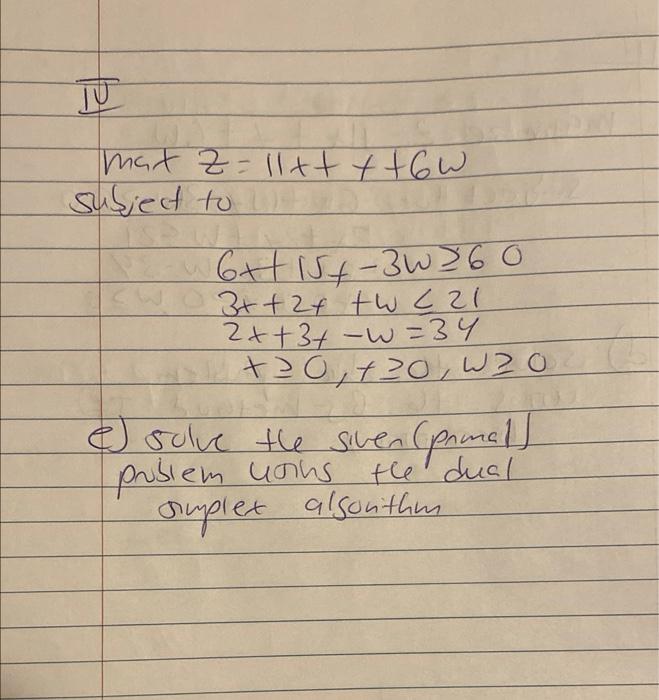 IV
max Z = 11x + y + 6w
subject to
6x + 15y - 3w ≥ 60
3x + 2y + w ≤ 21
2x + 3y - w = 34
x ≥ 0, y ≥ 0, w ≥ 0
e) solve the given (primal)
problem using the dual
simplex algorithm